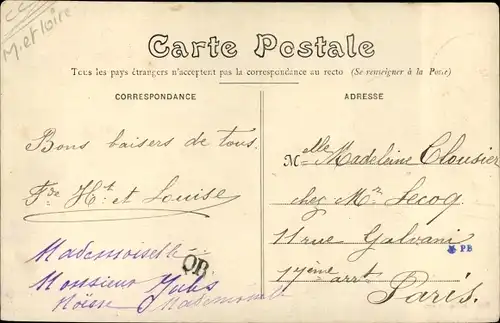 CC
M. et Loire
Carte Postale
Tous les pays étrangers n'acceptent pas la correspondance au recto (Se renseigner à la Poste)
CORRESPONDANCE
ADRESSE
Bons baisers de tous.
Hte et Louise
Melle Madeleine Clousier
chez Mr Lecoq
11 rue Galvani
17ème arrt Paris.
PB
Mademoiselle
OR
Monsieur Jules
Mademoiselle